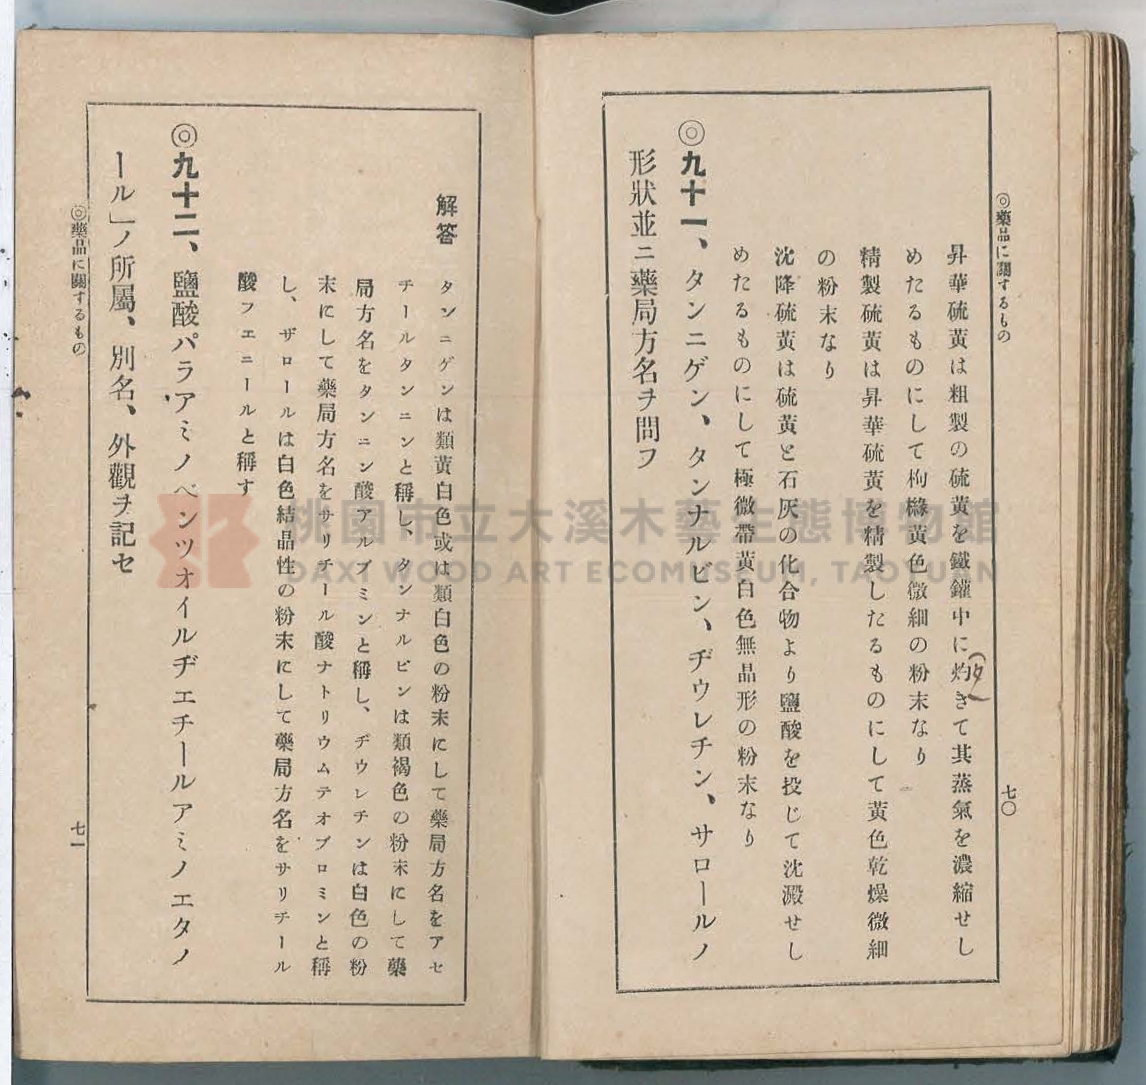 ◎藥品に關するもの
昇華硫黃は粗製の硫黃を鐵鑵中に灼きて其蒸氣を濃縮せし
めたるものにして枸櫞黃色微細の粉末なり
精製硫黃は昇華硫黃を精製したるものにして黃色乾燥微細
の粉末なり
沈降硫黃は硫黃と石灰の化合物より鹽酸を投じて沈澱せし
めたるものにして極微帶黃白色無晶形の粉末なり
◎九十一、タンニゲン、タンナルビン、ヂウレチン、サロールノ
形狀並ニ藥局方名ヲ問フ
七〇
解答
タンニゲンは類黃白色或は類白色の粉末にして藥局方名をアセ
チールタンニンと稱し、タンナルビンは類褐色の粉末にして藥
局方名をタンニン酸アルブミンと稱し、ヂウレチンは白色の粉
末にして藥局方名をサリチール酸ナトリウムテオブロミンと稱
し、ザロールは白色結晶性の粉末にして藥局方名をサリチール
酸フエニールと稱す
◎九十二、鹽酸パラアミノベンツオイルヂエチールアミノエタノ
ール」ノ所屬、別名、外觀ヲ記セ
◎藥品に關するもの
七一
桃園市立大溪木藝生態博物館
DAXI WOOD ART ECOMUSEUM, TAOYUAN